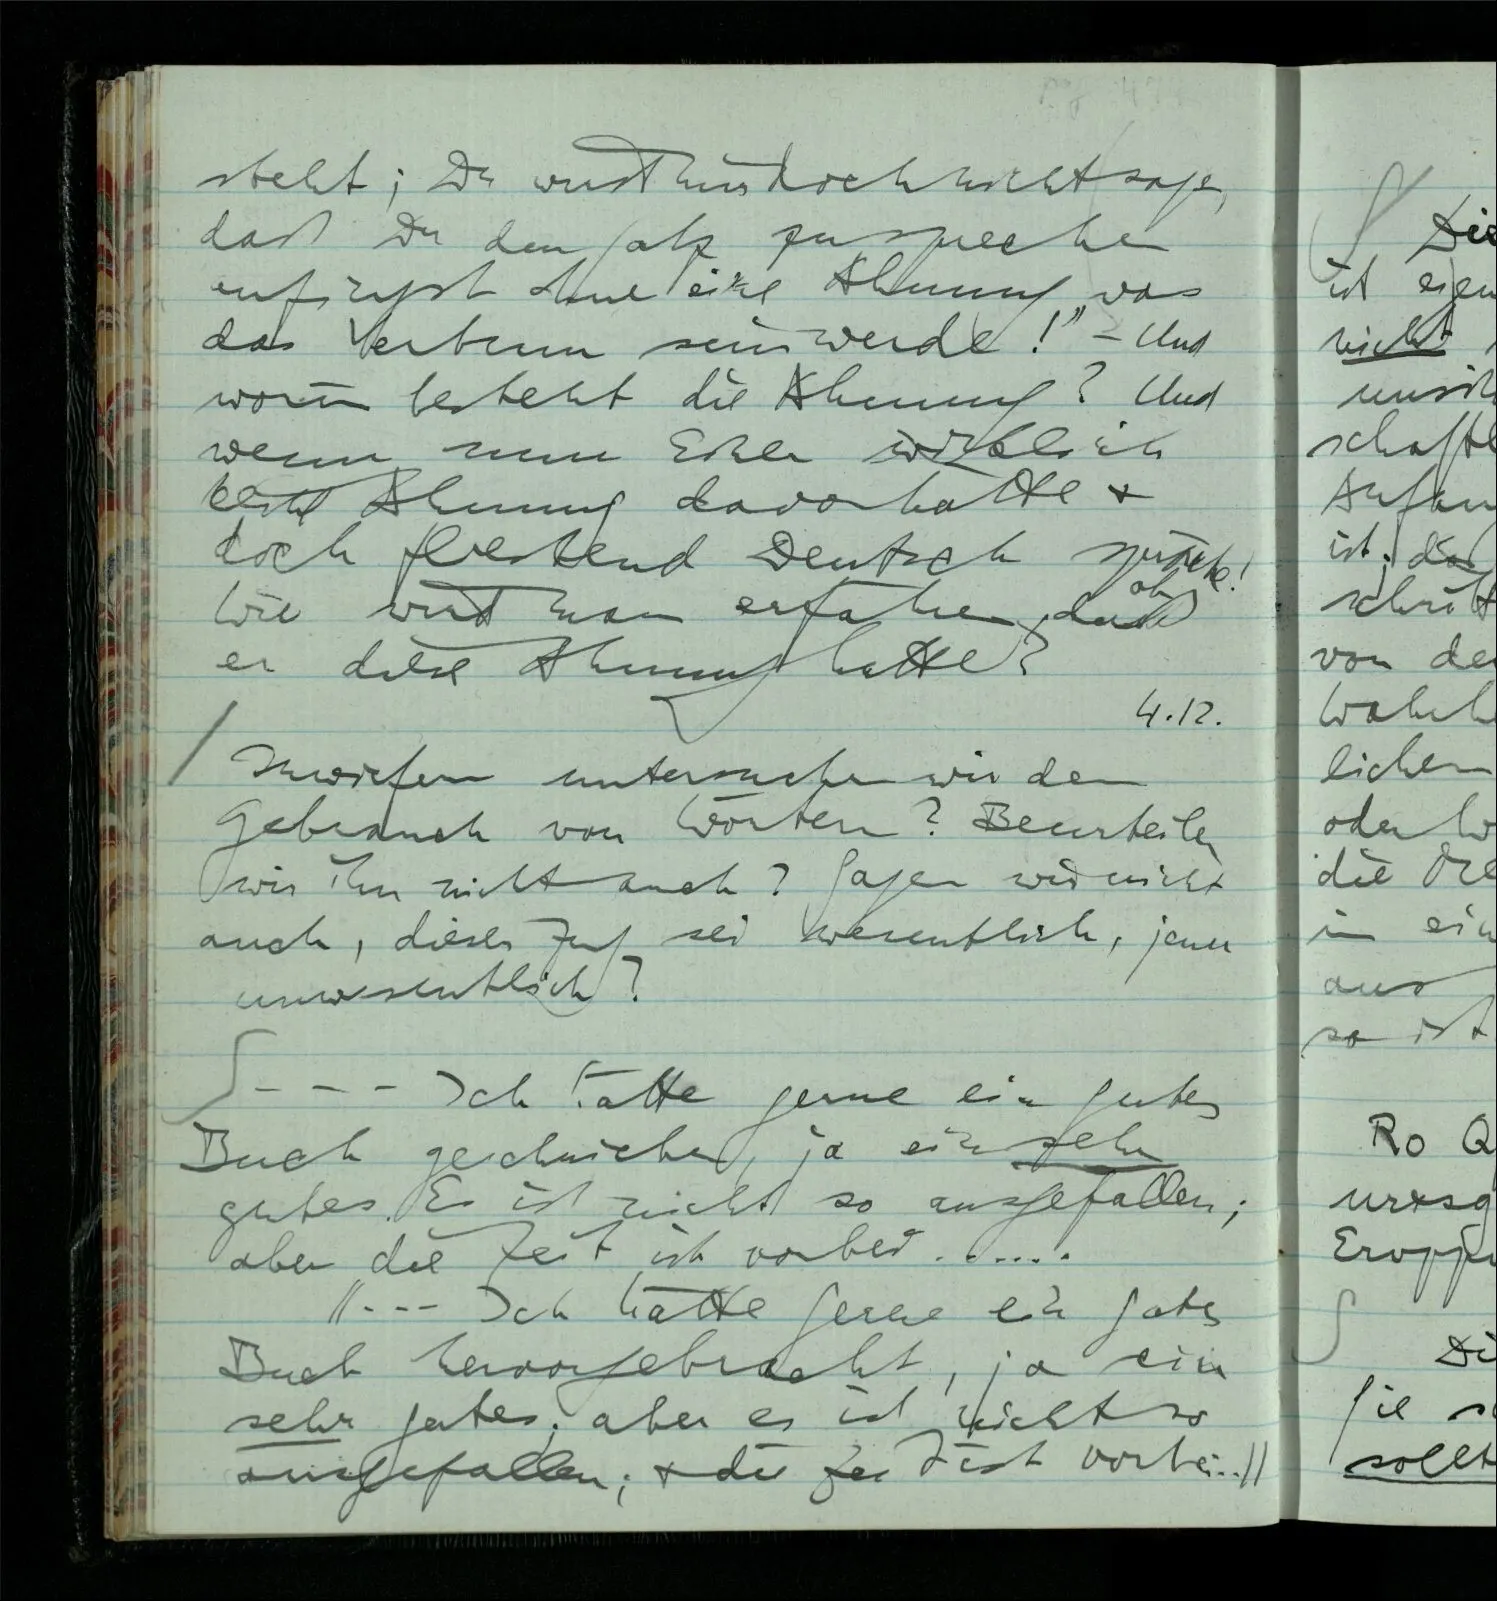 steht; Du wirst uns doch nicht sagen,
daß Du den Satz zu sprechen
anfingst ohne eine Ahnung, was
das Verbum sein werde!" – Und
worin besteht die Ahnung? Und
wenn nun Einer wirklich
keine Ahnung davon hätte &
doch fließend Deutsch spräche!
Wie wird man erfahren, daß ob
er diese Ahnung hatte?
4.12.
/ Inwiefern untersuchen wir den
Gebrauch von Wörtern? Beurteilen
wir ihn nicht auch? Sagen wir nicht
auch, dieser Zug sei wesentlich, jener
unwesentlich?
∫ - - - - Ich hätte gerne ein gutes
Buch geschrieben, ja ein sehr
gutes. Es ist nicht so ausgefallen;
aber die Zeit ist vorbei ......
//--- Ich hätte gerne ein gutes
Buch hervorgebracht, ja ein
sehr gutes; aber es ist nicht so
ausgefallen; & die Zeit ist vorbei..//
∫ Die
ist
nicht
schaft
ist; das
schrift
von de
lichen
oder W
die
in ein
aus
so ist
Ro Q
urxsg
∫ Di
sie s
sollt